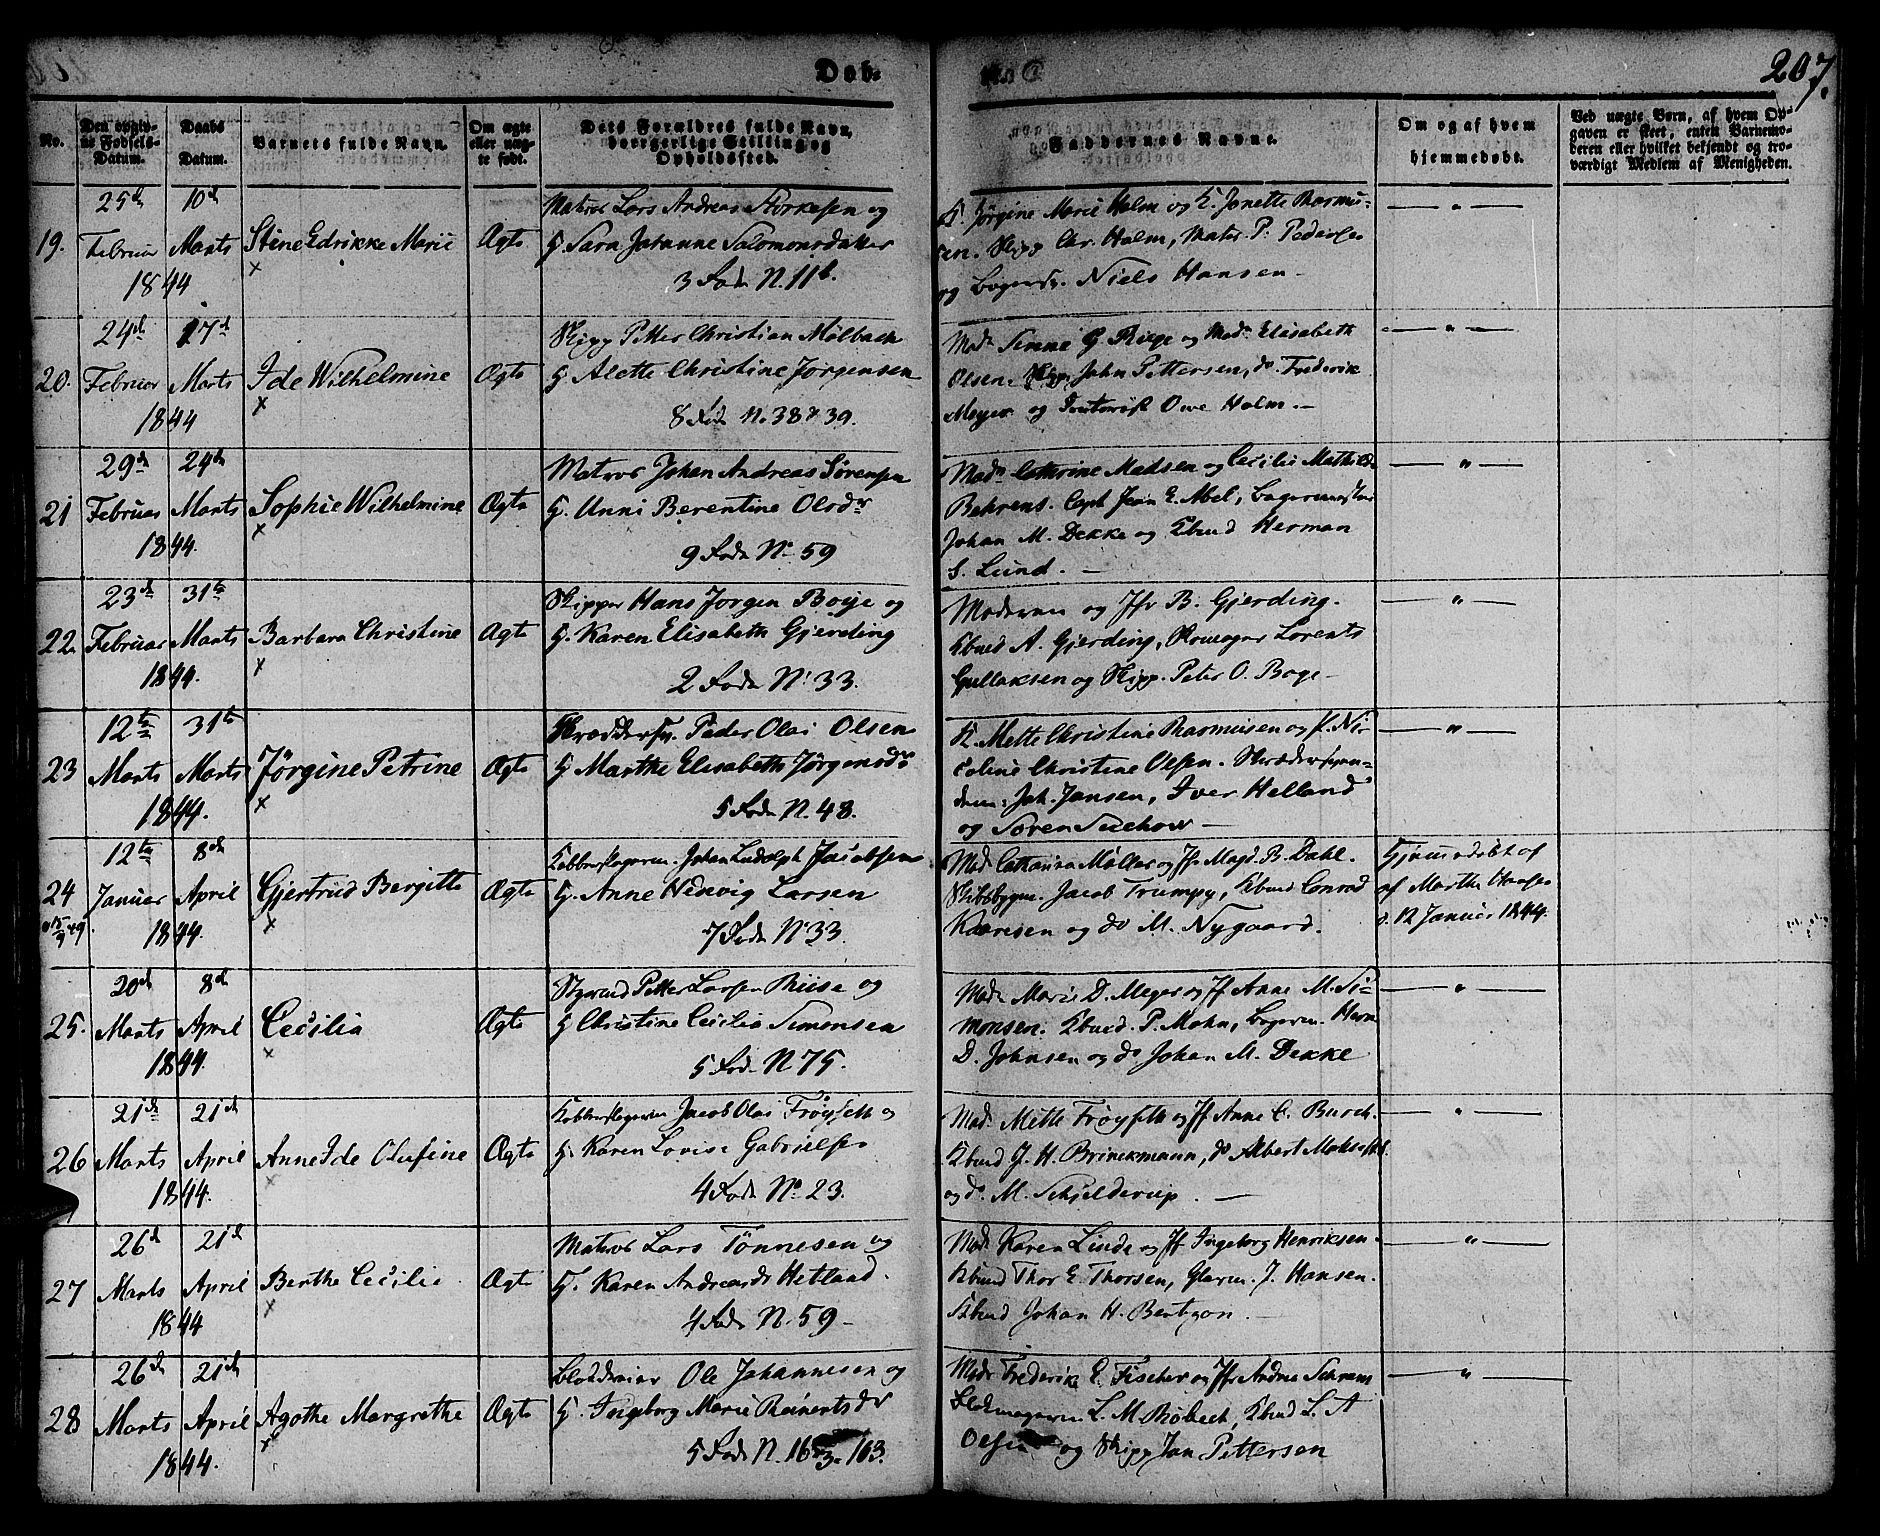 Døb-
207.
No.
Den opgiv-
ne Fødsels-
Datum.
Daabs
Datum.
Barnets fulde Navn.
Om ægte
eller uæg-
te født.
Dets Forældres fulde Navn,
borgerlige Stilling og
Opholdssted.
Faddernes Navne.
Om og af hvem
hjemmedøbt.
Ved uægte Børn, af hvem Op-
gaven er skeet, enten Barnemo-
deren eller hvilket bekjendt og tro-
værdigt Medlem af Menigheden.
19.
25de Februar 1844
10de Marts
Stine Edrikke Marie
Ægte
Matros Lars Andreas Storkesen og
H. Sara Johanne Salomonsdatter
3 Rode N. 11b.
K. Jørgine Marie Holm og K. Janette Rasmus-
sen. Skipp Chr. Holm, Matr. P. Pedersen
og Bagersv. Niels Hansen -
20.
24de Februar 1844
17de Marts
Ide Wilhelmine
Ægte
Skipp Petter Christian Mølbach
H. Alette Christine Jørgensen
8 Rode N. 38 & 39.
Madm Sinne G. Riege og Madm Elisabeth
Olsen. Skipp John Pettersen, do Frederik
Meyer og Ove Holm. -
21
29de Februar 1844.
24de Marts
Sophie Wilhelmine
Ægte
Matros Johan Andreas Sørensen
H. Unni Berentine Olsdr
9 Rode No 59
Madm Cathrine Madsen og Cecilie Mathilde
Behrens. Capt Jens E. Abel, Bagermester
Johan M. Dekke og Kbmd Herman
S. Lund. -
22
23de Februar 1844.
31te Marts
Barbara Christine
Ægte
Skipper Hans Jørgen Boije og
H. Karen Elisabeth Gjerding
2 Rode N. 33.
Moderen og Jfr B. Gjerding.
Kbmd A. Gjerding, Lorents
Gullaksen og Skipp. Peter O. Boge -
23
12te Marts 1844.
31te Marts
Jørgine Petrine
Ægte
Skræddersv. Peder Olai Olsen
H Marthe Elisabeth Jørgensdr
5 Rode N. 48.
K. Mette Christine Rasmusen og P. Ni-
coline Christine Olsen. Skræddersven-
dene: Joh. Jansen, Iver Helland
og Søren Suchow -
24
12te Januar 1844.
8de April
Gjertrud Bergitte
Ægte
Kobberslagerm. Johan Ludolph Jacobsen
H. Anne Hedevig Larsen
7 Rode N. 33.
Mad Cathrina Møller og Jfr Magd. B. Dahl.
Skibsbygm. Jacob Trumpy, Kbmd Conrad
og do M. Nygaard.
Hjemmedøbt af
af Marthe
d. 12 Januar 1844.
25.
20de Marts 1844.
8de April
Cecilia
Ægte
Styrmd Petter Larsen Riise og
H Christine Cecilia Simonsen
5 Rode N 75.
Madm Marie D. Meyer og Jf Anne M. Si-
monsen. Kbmd. P. Mohn, Bagerm. Herm
D. Johnsen og do Johan M. Dekke
26
21de Marts 1844.
21de April
Anne Ide Olufine
Ægte
Kobberslagerm Jacob Olai Frøyseth og
H. Karen Lovise Gabrielsen
4 Rode No 23.
Mad. Mette Frøyseth og Jf Anne C. Busch.
Kbmd J. H. Brinckmann, do Albert
og do M. Schjelderup. -
27
26de Marts 1844
21de April
Berthe Cecilie
Ægte
Matros Lars Tønnesen og
H. Karen Andreasdr Hetland.
4 Rode N. 59 -
Mad Karen Linde og Jf Ingeborg Henriksen.
Kbmd Thor E. Thorsen, Glarm. J. Hansen.
Kbmd Johan H. Bentzon.
28
26de Marts 1844.
21de April
Agathe Margrethe
Ægte
Ole Johannesen og
H. Ingeborg Marie Reinertsdr
5 Rode N. 163.
Madm Frederik E. Fischer og Jfr Andrea Schram
L. M. Brøbech, Kbmd L. A
Olsen og Skipp Jan Pettersen